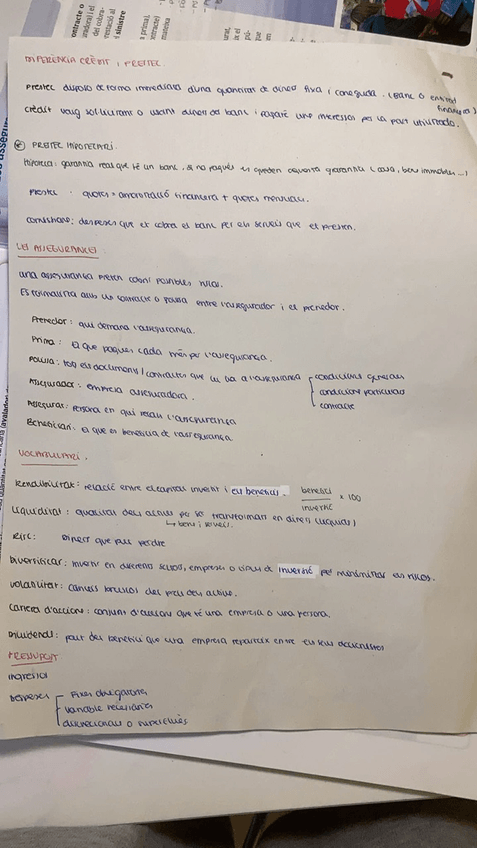 contracte o
primal,
contracte)
sinistre
DIFERÈNCIA CRÈDIT i PRESTEC.
Prestec disposo de forma immediata d'una quantitat de diners fixa i coneguda. (Banc o entitat financera)
crèdit vaig sol·licitant o usant diners del banc i pagaré uns interessos per la part utilitzada.
PRESTEC HIPOTECARI.
Hipoteca: garantia real que té un banc. Si no pagues es queden aquesta garantia (casa, bens immobles...)
Prestec - quotes = amortització financera + quotes mensuals.
Comissions: despeses que et cobra el banc per els serveis que et presten.
LES ASSEGURANCES
una assegurança preten cobrir possibles riscos.
Es formalitza amb un contracte o polissa entre l'assegurador i el prenedor.
Prenedor: qui demana l'assegurança.
Prima: El que pagues cada mes per l'assegurança.
Polissa: tots els documents/contractes que hi ha a l'assegurança
condicions generals
condicions particulars
contracte
Assegurador: empresa asseguradora.
Assegurat: Persona en qui recau l'assegurança
Beneficiari: El que es beneficia de l'assegurança.
VOCABULARI.
Rendibilitat: relació entre el capital invertit i els beneficis. benefici / invertit x 100
Liquiditat: qualitat dels actius per ser transformats en diners (líquids)
↳ bens i serveis.
Risc: Diners que puc perdre
Diversificar: Invertir en diferents sectors, empreses o tipus de inversió per minimitzar els riscos.
Volatilitat: canvis bruscos dels preus dels actius.
Cartera d'accions: conjunt d'accions que té una empresa o una persona.
Dividends: part del benefici que una empresa reparteix entre els seus accionistes
PRESSUPOST
Ingressos
Despeses
Fixes obligatories
variable necessàries
discrecionals o superflues